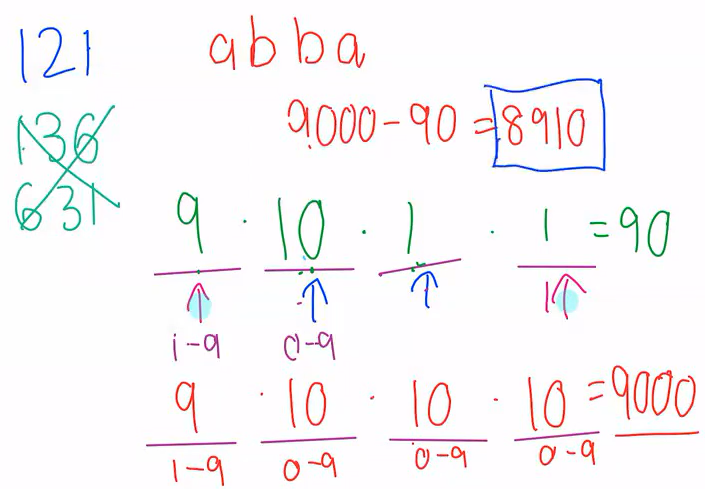 121
abba
136
631
9000 - 90 = 8910
9 · 10 · 1 · 1 = 90
1-9 0-9
9 · 10 · 10 · 10 = 9000
1-9 0-9 0-9 0-9